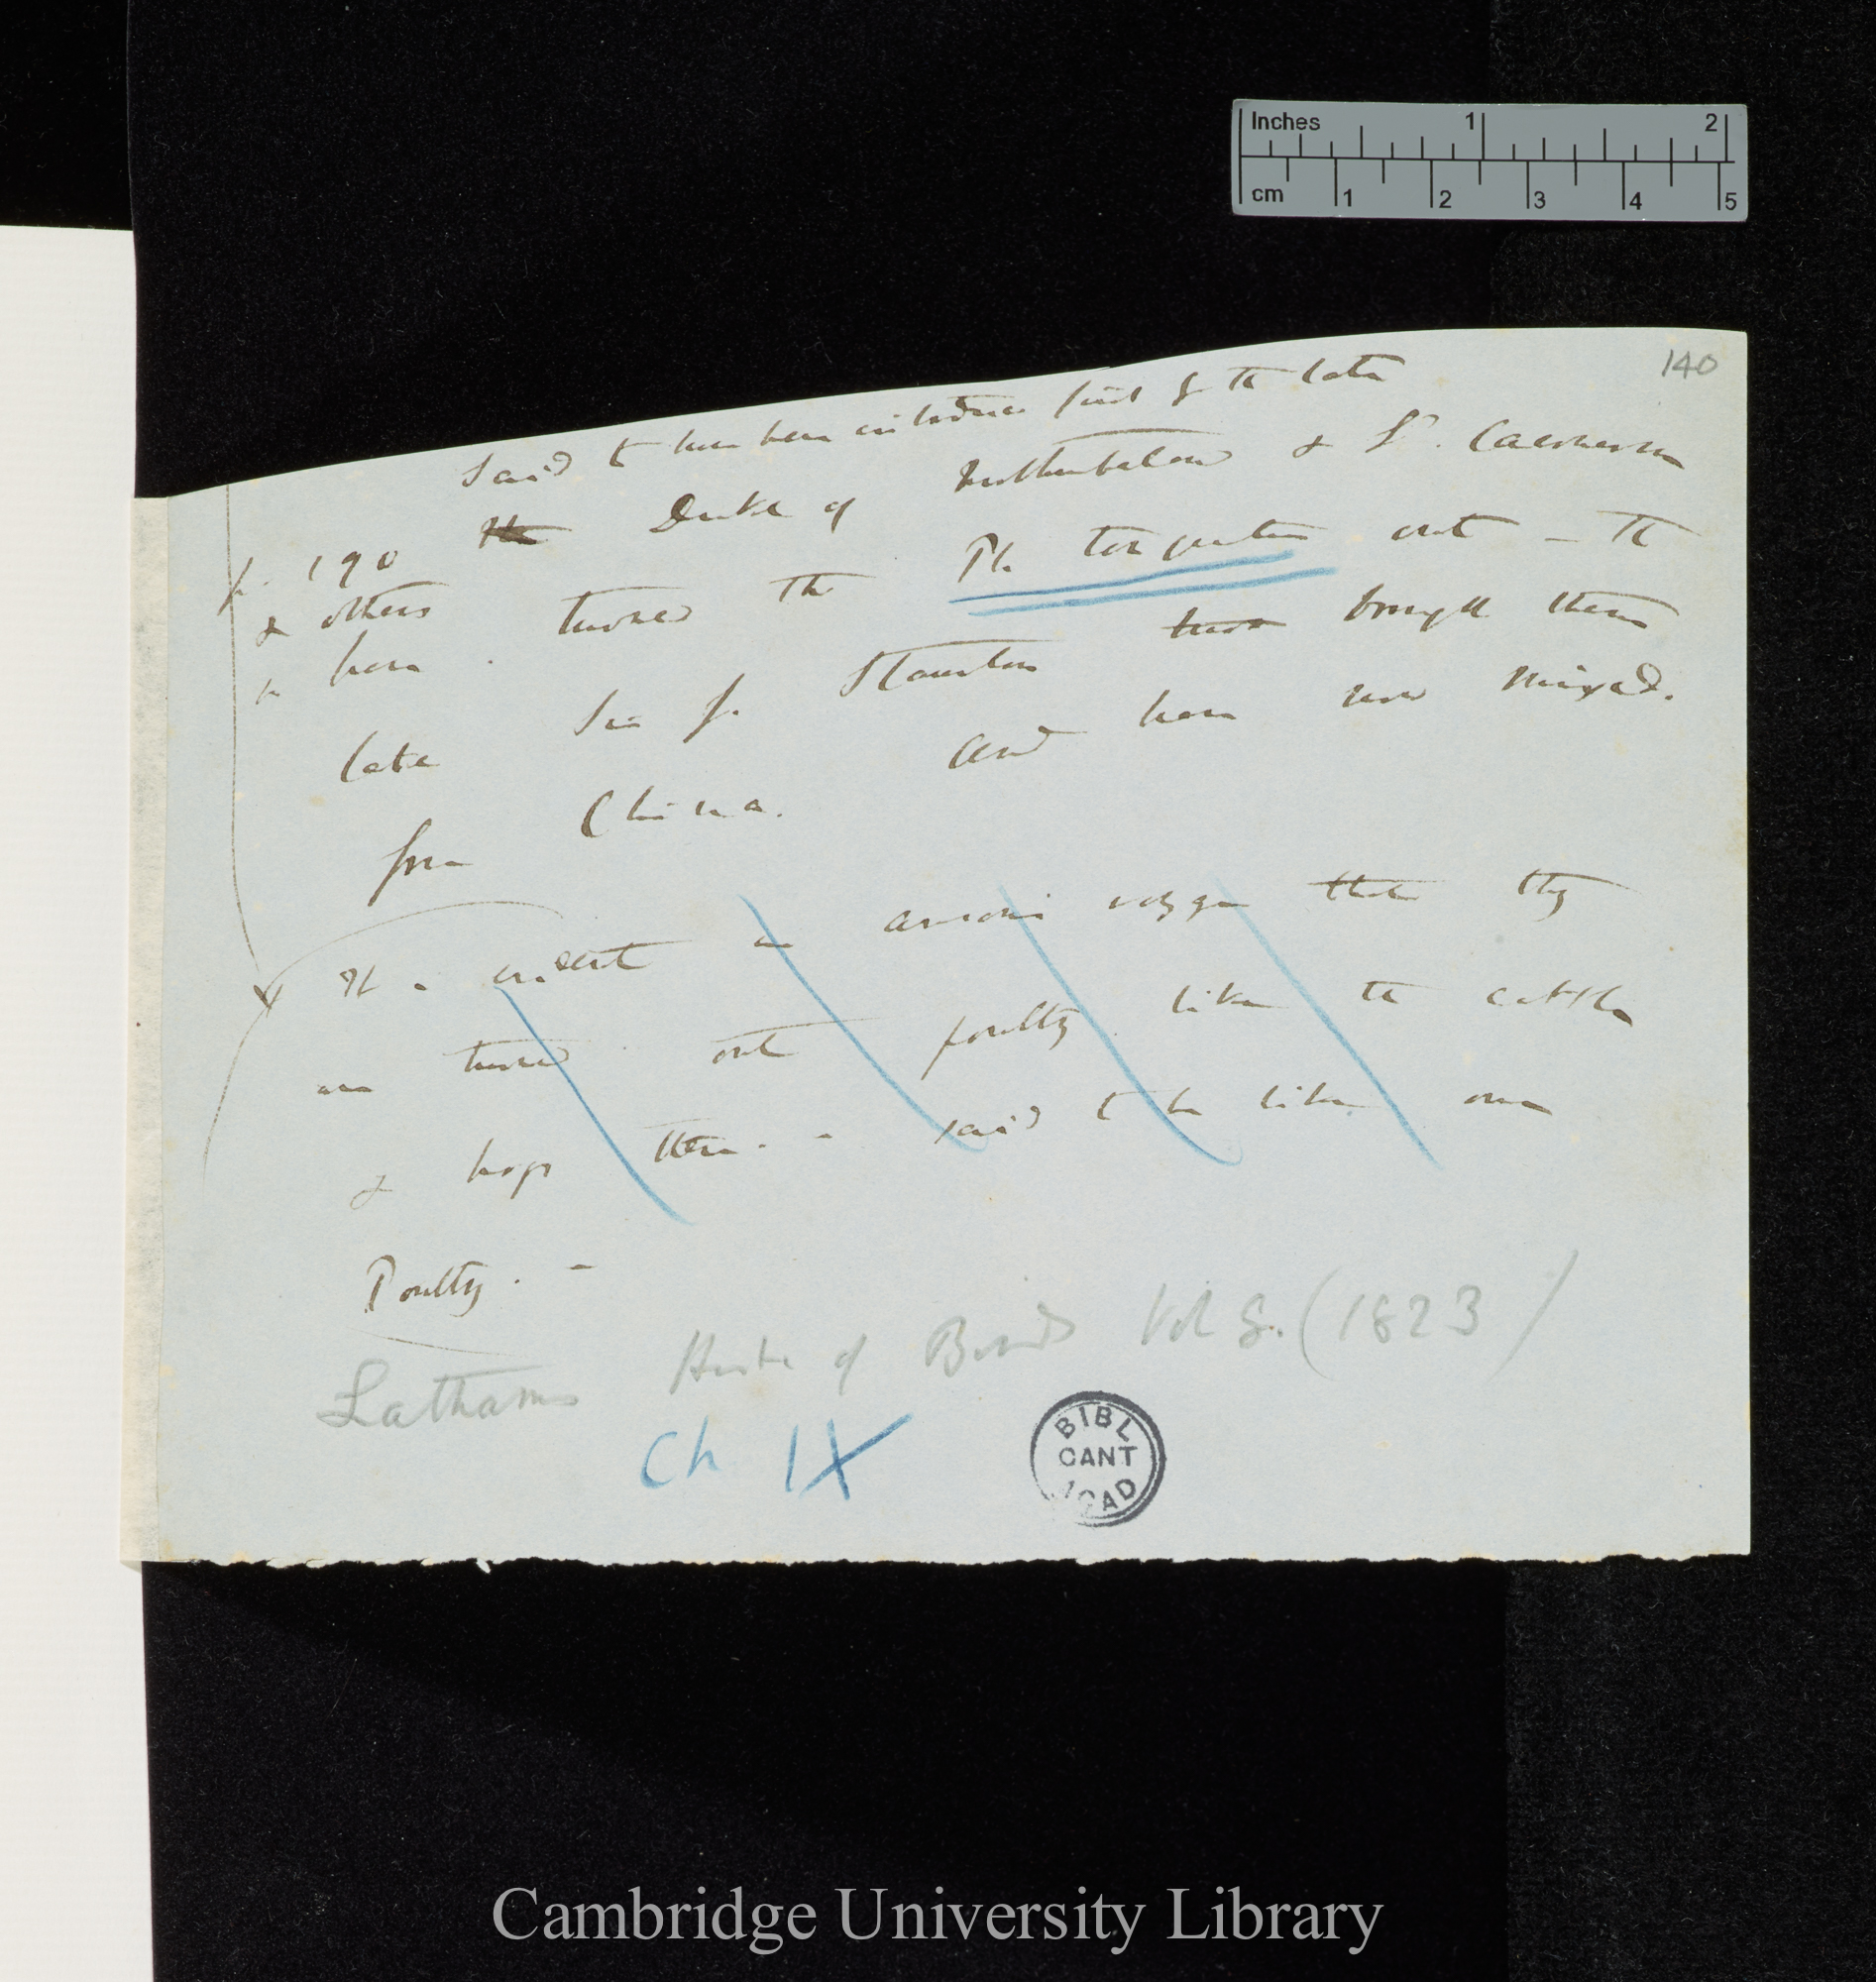 Inches 1 2
cm 1 2 3 4 5
140
said to have been introduced first by the late
p. 190 the Duke of Northumberland & Ld. Caernarvon
& others turned the Ph. torquatus out — The
late Sir G. Staunton have brought them
from China. and have now mixed.
It is evident in ancient voyages that they
turned out poultry like the cattle
& hogs then. — said to be like our
Poultry. —
Lathams Hist of Birds Vol 8. (1823)
Ch IX
BIBL
CANT
ACAD
Cambridge University Library